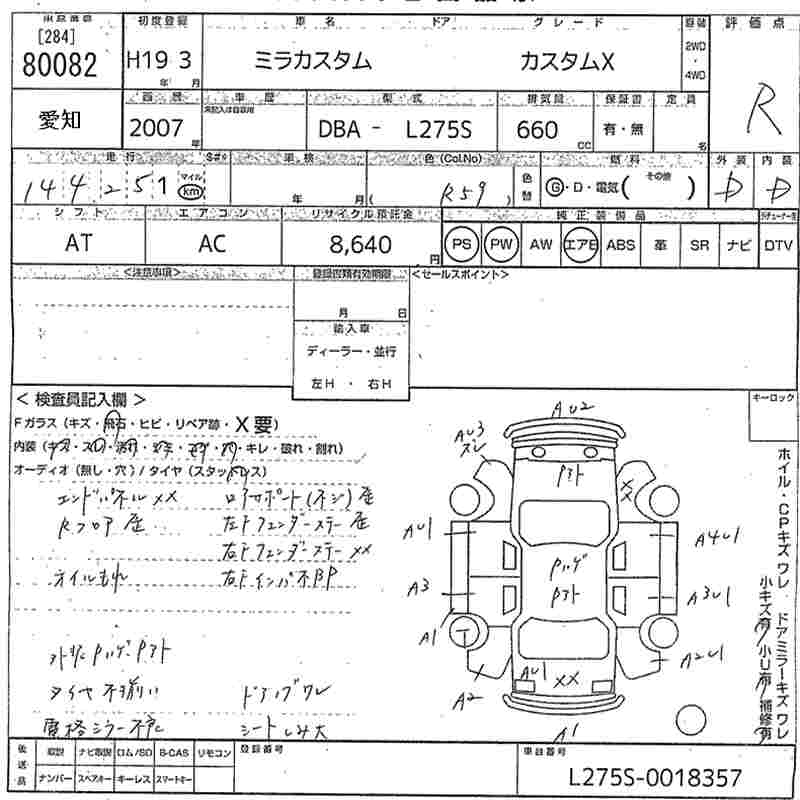 [284]
80082
初度登録
車名 ドア グレード
評価点
H19 3
年 月
ミラカスタム
カスタムX
2WD
・
4WD
R
愛知
2007
年
車歴
型式
排気量
保証書
定員
DBA - L275S
660
CC
有・無
名
走行
車検
色(Col.No)
燃料
外装
内装
144251
マイル
km
年 月
R59
色替
G・D・電気( その他 )
D
D
シフト
エアコン
リサイクル預託金
純正装備品
AT
AC
8,640
円
PS PW AW エアB ABS 革 SR ナビ DTV
<注意事項>
登録書類有効期限
<セールスポイント>
月 日
輸入車
ディーラー・並行
左H ・ 右H
< 検査員記入欄 >
キーロック
Fガラス (キズ・飛石・ヒビ・リペア跡・X要)
・キレ・破れ・割れ)
オーディオ (無し・穴) / タイヤ (スタッドレス)
エンドパネルXX
Rフロア 歪
左Fフェンダーステー 歪
右Fフェンダーステー XX
オイルもれ
右Fインパネ部P
タイヤ不揃い
ドアバブワレ
シートしみ大
AU2
AU3
ズレ
Pアト
XX
AU1
A4U1
Pハゲ
Pアト
A3
A3U1
A1
T
A2U1
A2
AU1
XX
A1
ホイル・CPキズ ワレ ドアミラーキズ ワレ
小キズ有 小U有 補修有
後送品
取説 ナビ取説 ロム/SD B-CAS リモコン
ナンバー スペアキー キーレス スマートキー
登録番号
車台番号
L275S-0018357